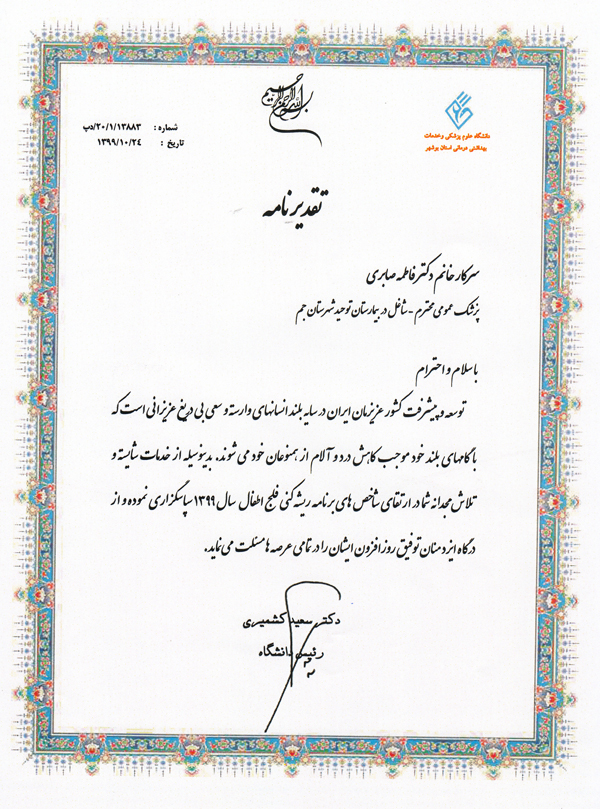 بسم الله الرحمن الرحیم
دانشگاه علوم پزشکی و خدمات
بهداشتی درمانی استان بوشهر
شماره : ۲۰/۱/۱۳۸۸۳/دپ
تاریخ : ۱۳۹۹/۱۰/۲٤
تقدیرنامه
سرکار خانم دکتر فاطمه صابری
پزشک عمومی محترم - شاغل در بیمارستان توحید شهرستان جم
با سلام و احترام
توسعه و پیشرفت کشور عزیزمان ایران در سایه بلند انسانهای وارسته و سعی بی دریغ عزیزانی است که
با گامهای بلند خود موجب کاهش درد و آلام از همنوعان خود می شوند. بدینوسیله از خدمات شایسته و
تلاش مجدانه شما در ارتقای شاخص های برنامه ریشه کنی فلج اطفال سال ۱۳۹۹ سپاسگزاری نموده و از
درگاه ایزد منان توفیق روزافزون ایشان را در تمامی عرصه ها مسئلت می نماید.
دکتر سعید کشمیری
رئیس دانشگاه